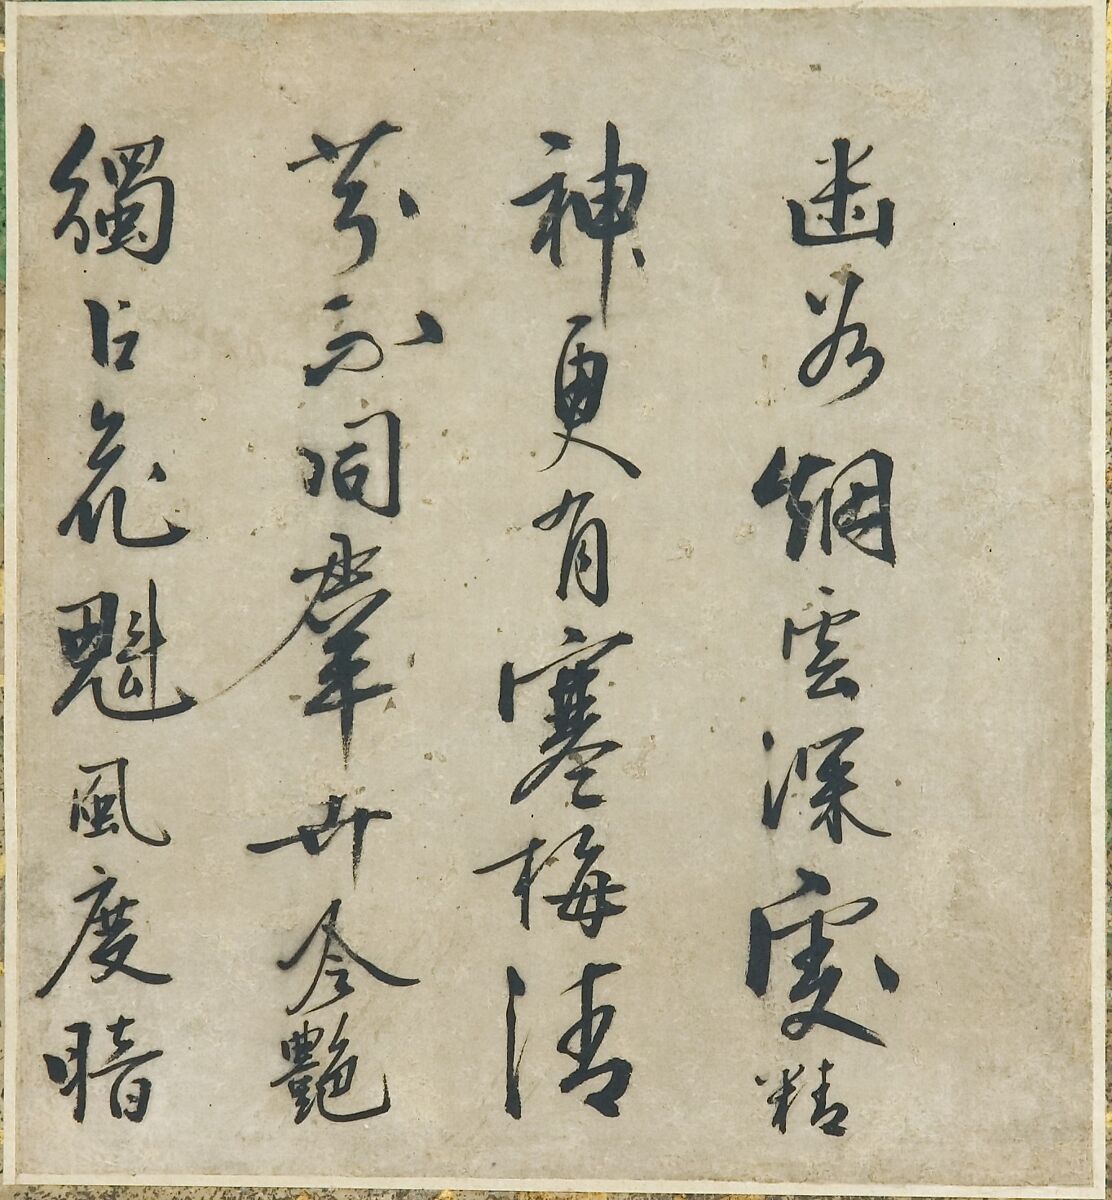 幽谷烟雲深處精
神更有寒梅清
芬不同羣卉令艷
獨占花魁風度暗